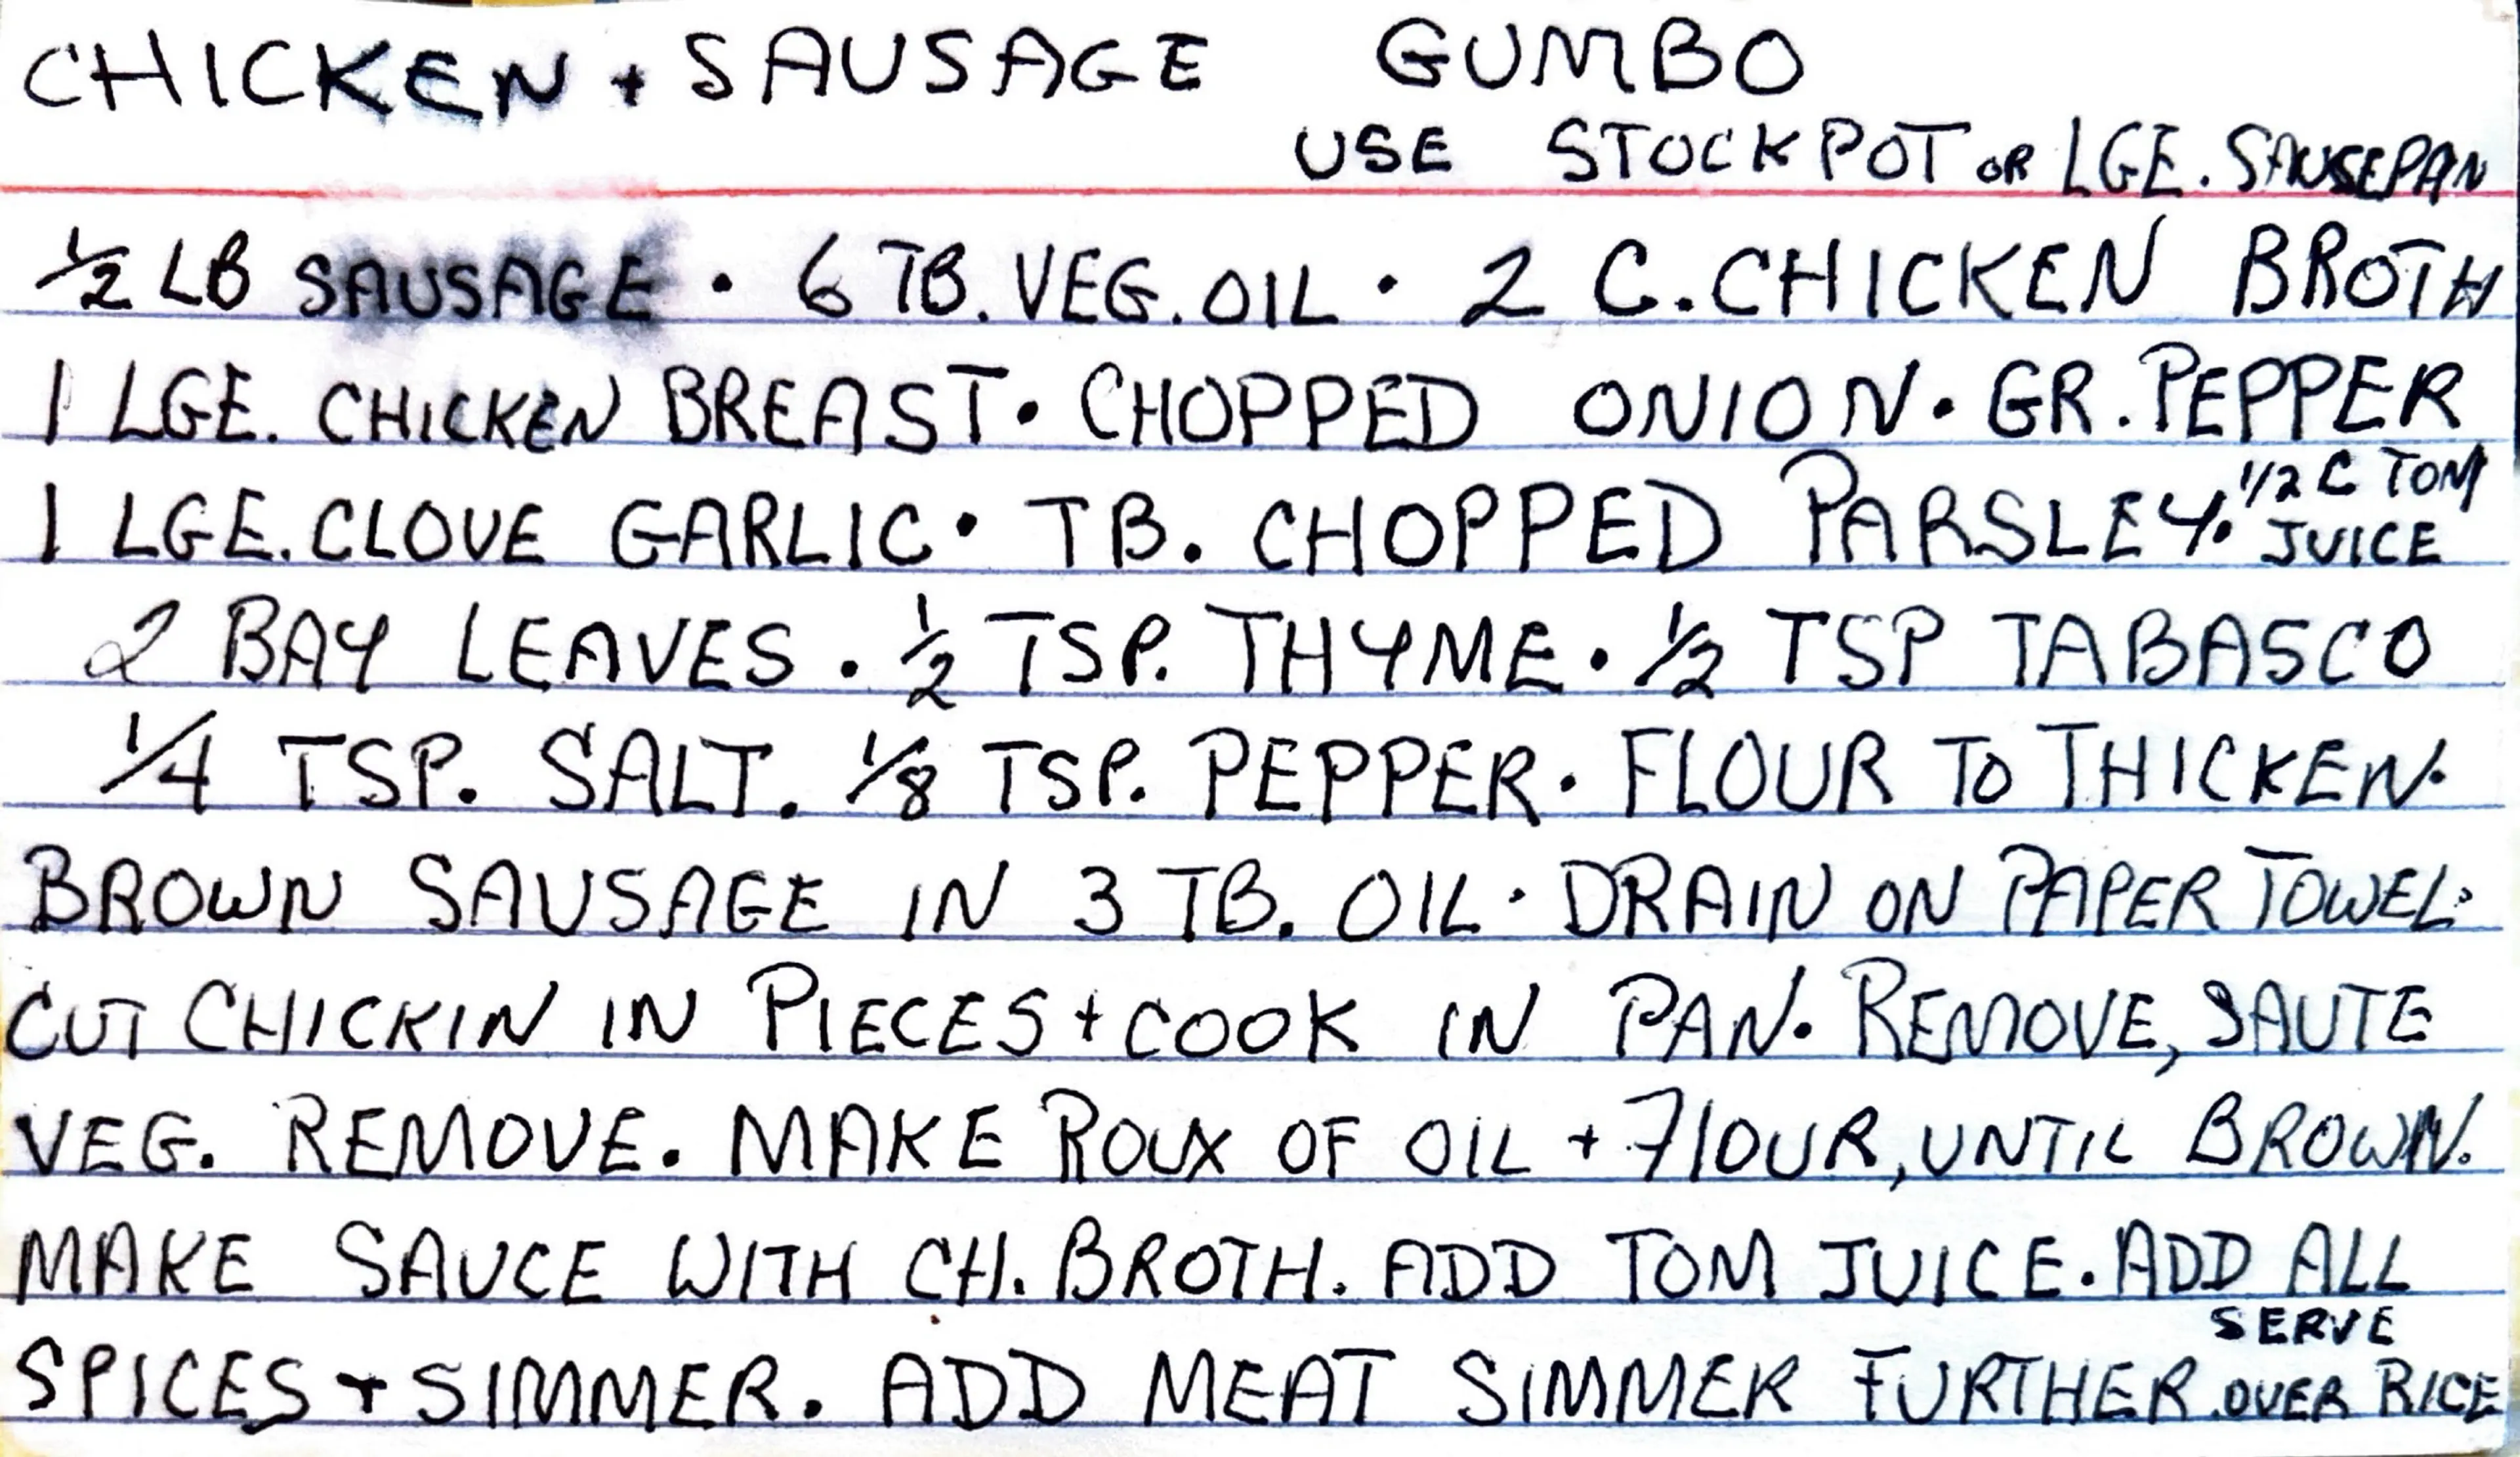 CHICKEN + SAUSAGE GUMBO
USE STOCKPOT OR LGE. SAUSEPAN
1/2 LB SAUSAGE • 6 TB. VEG. OIL • 2 C. CHICKEN BROTH
1 LGE. CHICKEN BREAST • CHOPPED ONION • GR. PEPPER
1 LGE. CLOVE GARLIC • TB. CHOPPED PARSLEY • 1/2 C TOM JUICE
2 BAY LEAVES • 1/2 TSP. THYME • 1/2 TSP TABASCO
1/4 TSP. SALT. 1/8 TSP. PEPPER • FLOUR TO THICKEN •
BROWN SAUSAGE IN 3 TB. OIL • DRAIN ON PAPER TOWEL •
CUT CHICKIN IN PIECES + COOK IN PAN. REMOVE, SAUTE
VEG. REMOVE. MAKE ROUX OF OIL + FlOUR, UNTIL BROWN.
MAKE SAUCE WITH CH. BROTH. ADD TOM JUICE. ADD ALL
SPICES + SIMMER. ADD MEAT SIMMER FURTHER. SERVE OVER RICE